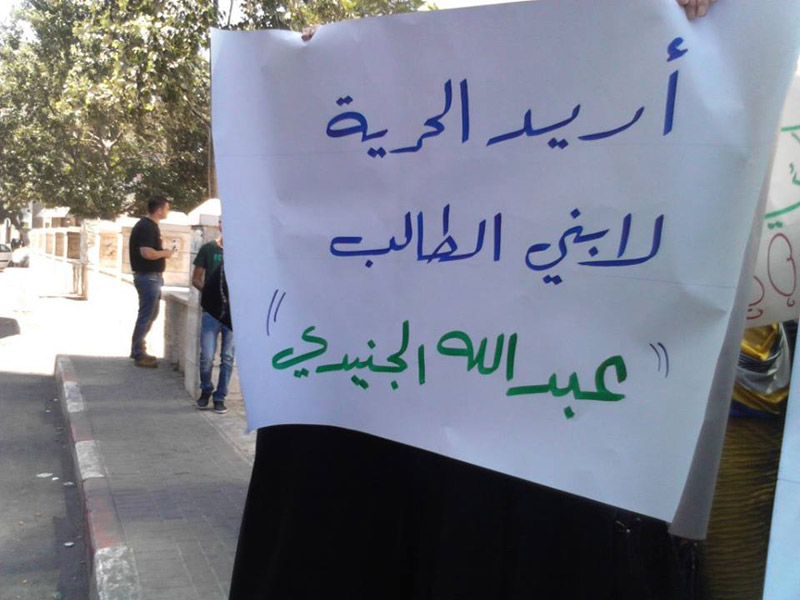 أريد الحرية
لابني الطالب
"عبد الله الجنيدي"